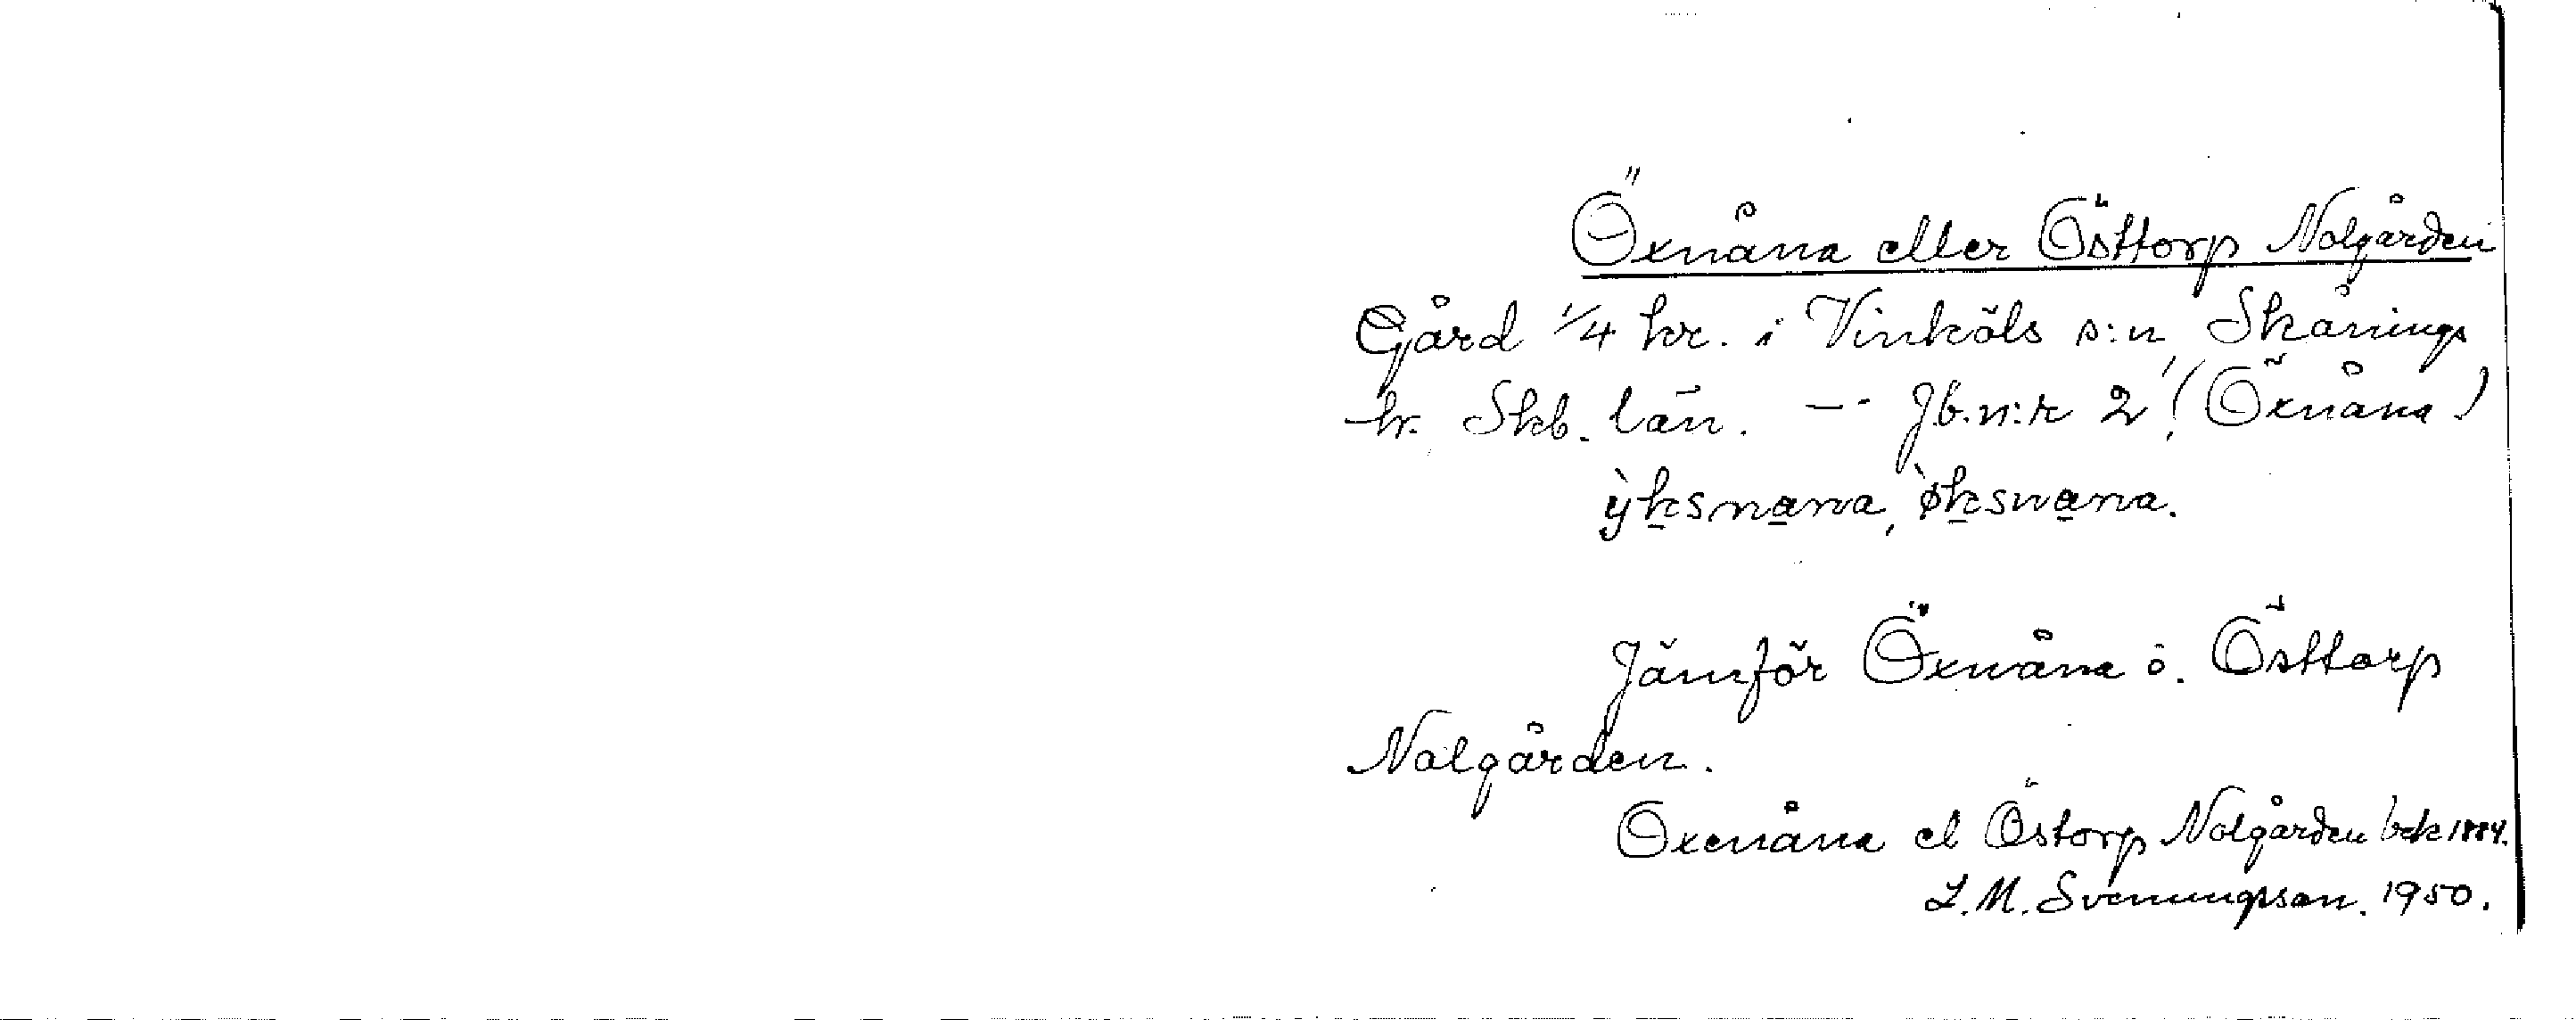 Öxnåna eller Östtorp Nolgården
Gård 1/4 kr. i Vinköls s:n, Skånings
hr. Skb. län. — Jb.n:r 2, (Öxnåna)
ỳksnana, ø̀ksnana.
Jämför Öxnåna o. Östtorp
Nolgården.
Oxenåna el Östorp Nolgården brk 1884.
L.M. Svenungsson. 1950.